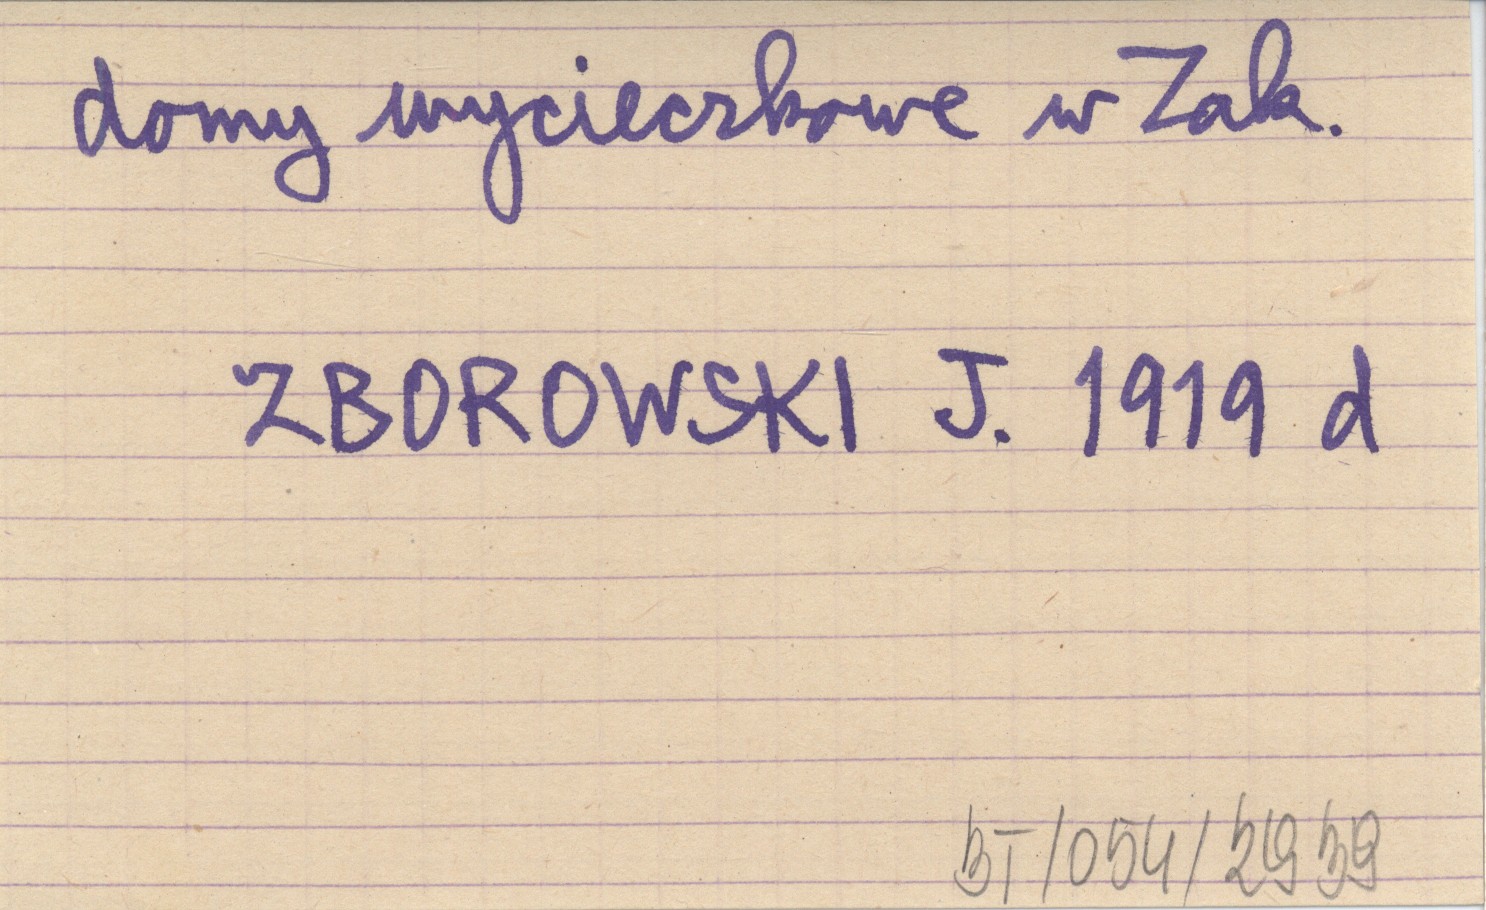 domy wycieczkowe w Zak.
ZBOROWSKI J. 1919 d
BT/054/2939